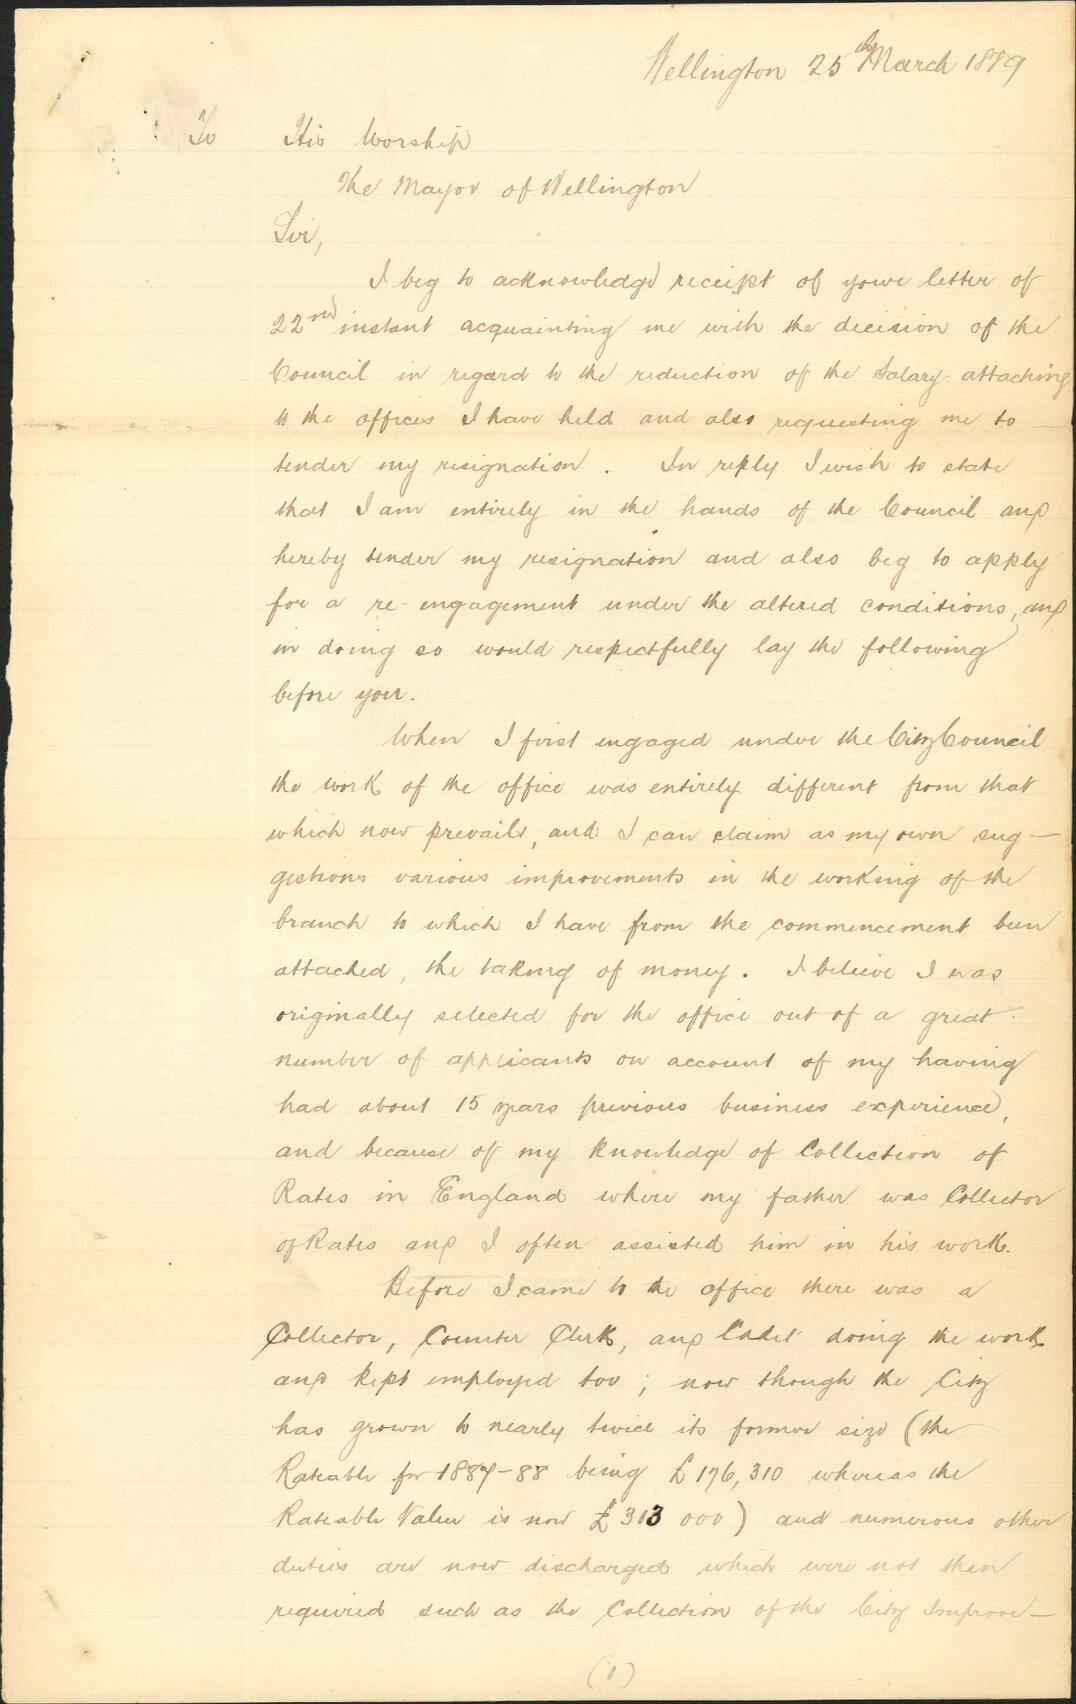 Wellington 25th March 1889
To His Worship
The Mayor of Wellington
Sir,
I beg to acknowledge receipt of your letter of
22nd instant acquainting me with the decision of the
Council in regard to the reduction of the Salary attaching
to the offices I have held and also requesting me to
tender my resignation. In reply I wish to state
that I am entirely in the hands of the Council and
hereby tender my resignation and also beg to apply
for a re-engagement under the altered conditions, and
in doing so would respectfully lay the following
before you.
When I first engaged under the City Council
the work of the office was entirely different from that
which now prevails, and I can claim as my own sug-
gestions various improvements in the working of the
branch to which I have from the commencement been
attached, the taking of money. I believe I was
originally selected for the office out of a great
number of applicants on account of my having
had about 15 years previous business experience,
and because of my knowledge of Collection of
Rates in England where my father was Collector
of Rates and I often assisted him in his work.
Before I came to the office there was a
Collector, Counter Clerk, and Cadet doing the work
and kept employed too; now though the City
has grown to nearly twice its former size (the
Rateable for 1887-88 being £176,310 whereas the
Rateable Value is now £313 000) and numerous other
duties are now discharged which were not then
required such as the Collection of the City Improve-
(1)